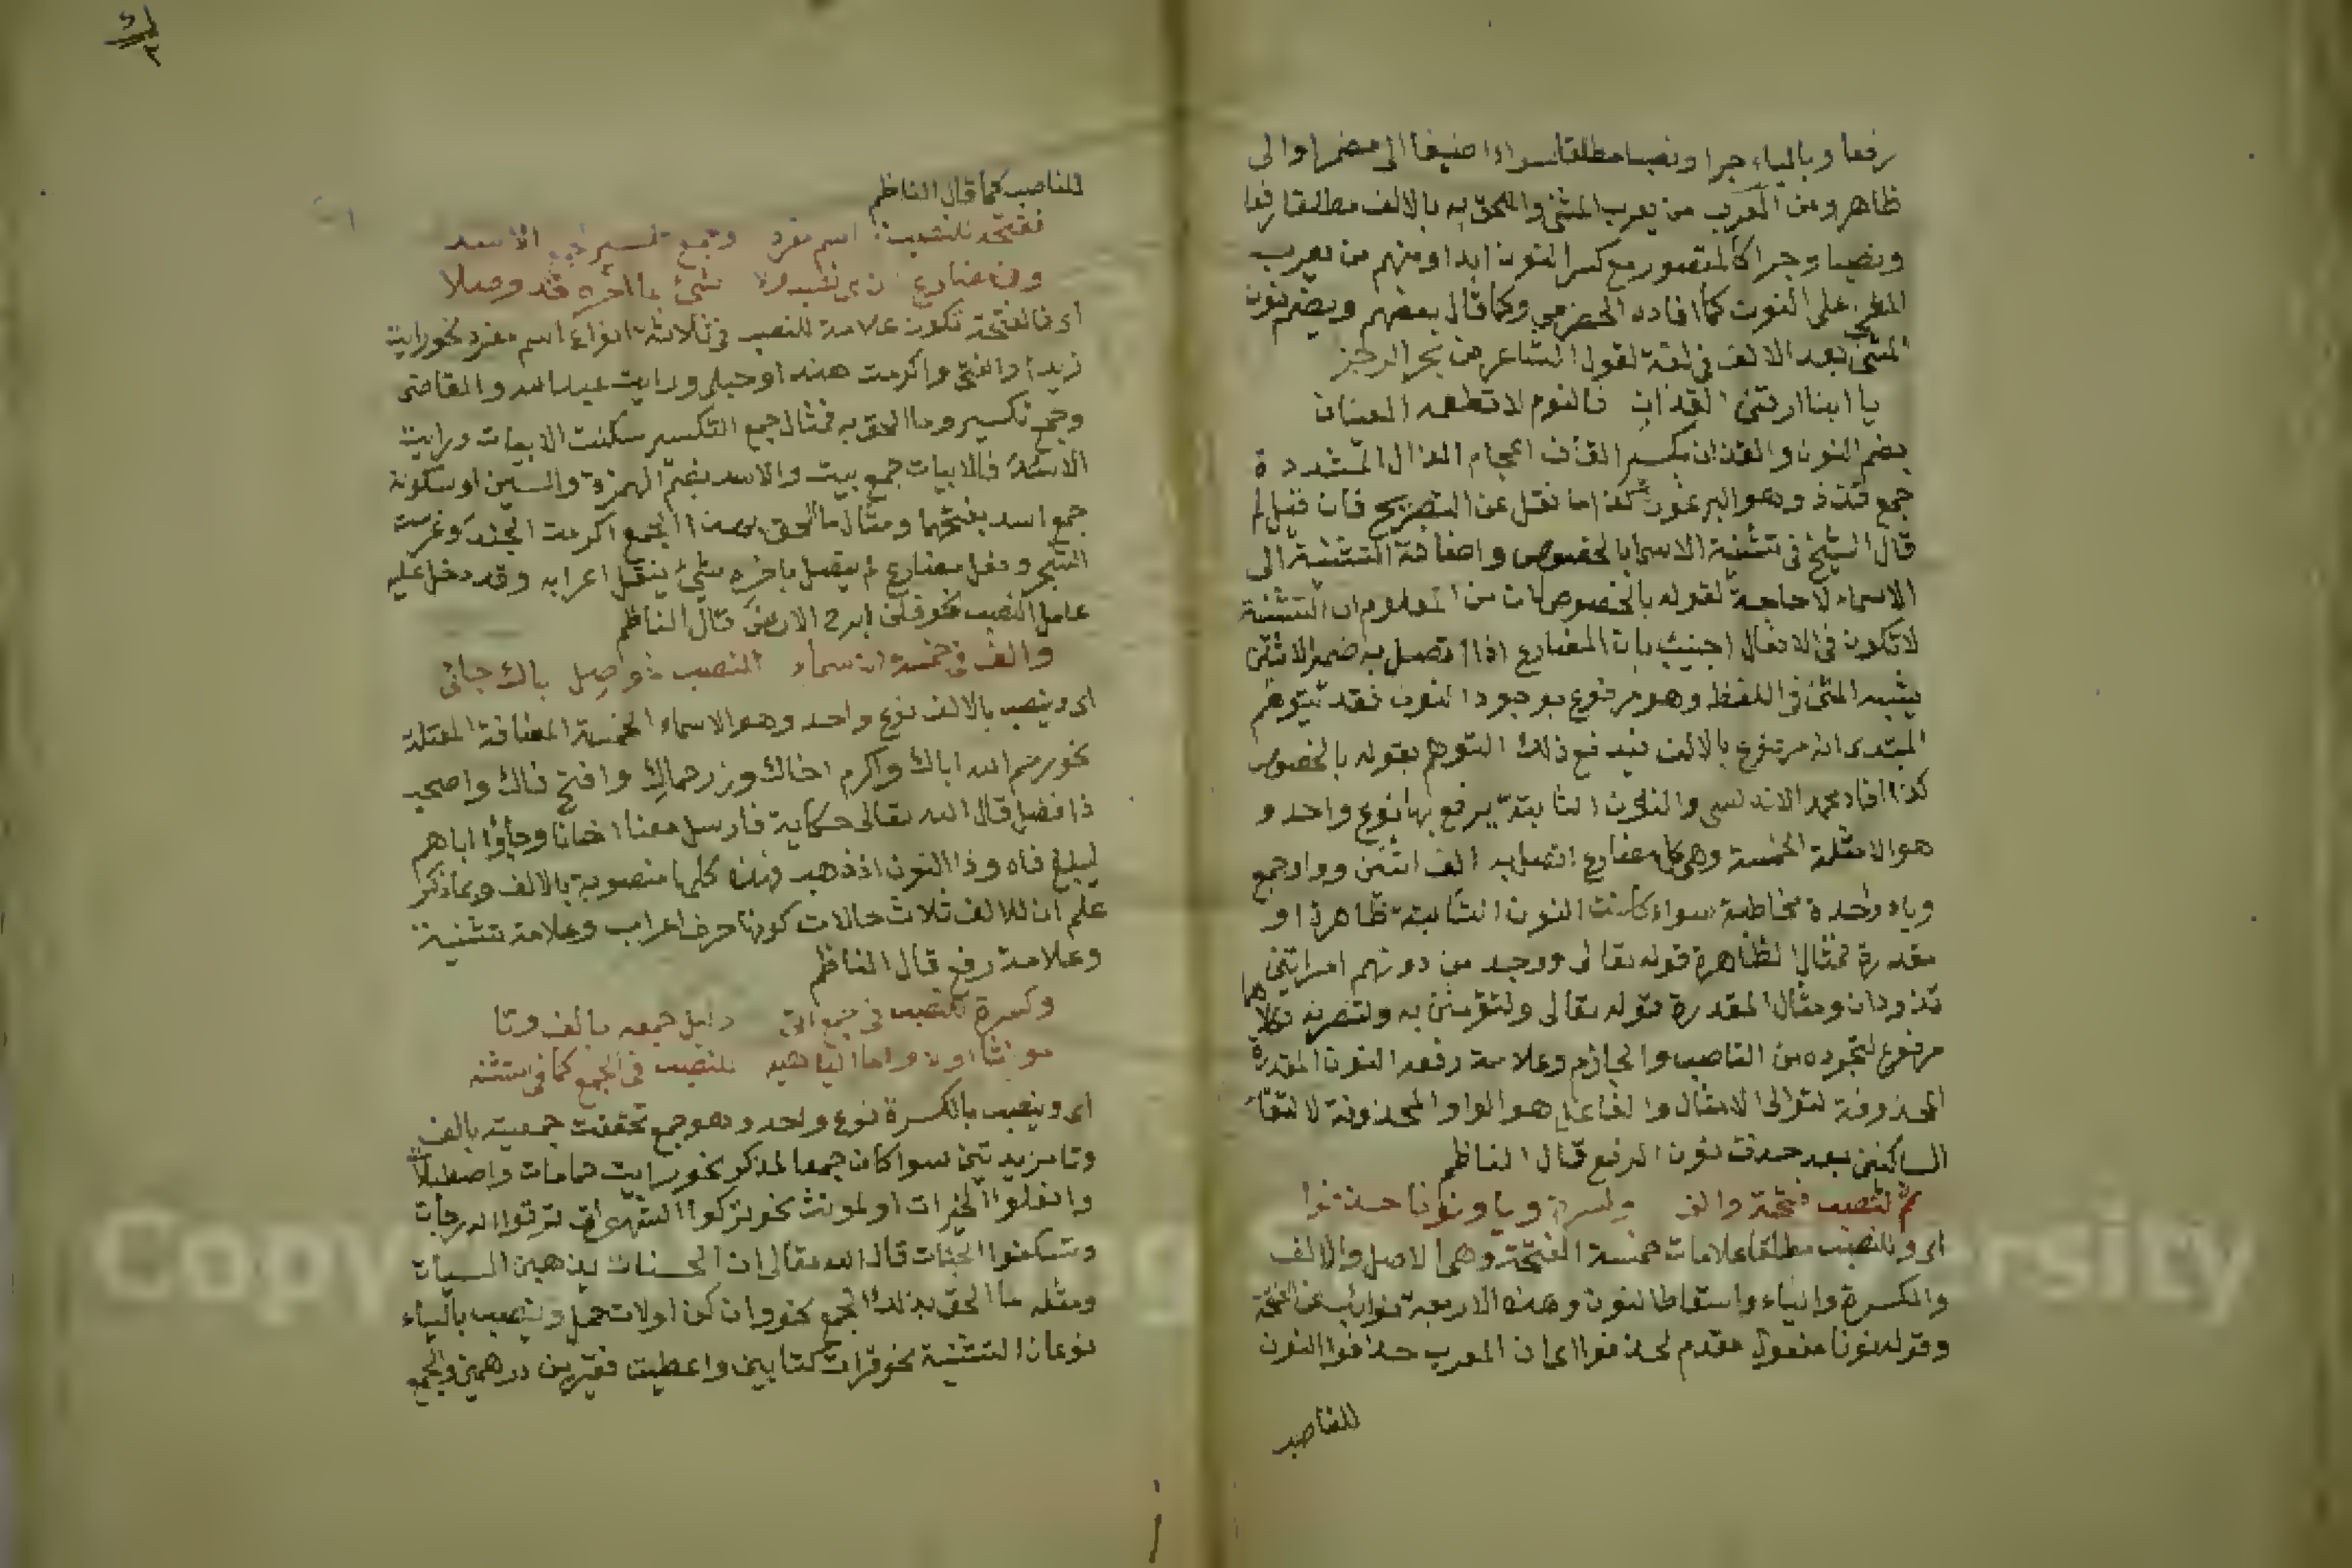 رفعا وبالياء جرا ونصبا مطلقا سواء اضيفا الى مضمر او الى
ظاهر ومن العرب من يعرب المثنى والملحق به بالالف مطلقا رفعا
ونصبا وجرا كالمقصور مع كسر النون ابدا ومنهم من يعرب
المثنى على النون كما افاده الحضرمي وكما قال بعضهم ويضم نون
المثنى بعد الالف في لغة لقول الشاعر من بحر الرجز
يا ابتا ارقني القذان فالنوم لا تطعمه العينان
بضم النون والقذان بكسر القاف اعجام الذال المشددة
جمع قذذ وهو البرغوث كذا ما نقل عن التصريح فان قيل لم
قال الشيخ في تثنية الاسما بالخصوص واضافة التثنية الى
الاسماء لا حاجة لقوله بالخصوص لان من المعلوم ان التثنية
لا تكون في الافعال اجيب بان المضارع اذا اتصل به ضمير الاثنين
يشبه المثنى في اللفظ وهو مرفوع بوجود النون فقد يتوهم
المبتدى انه مرفوع بالالف فيدفع ذلك التوهم بقوله بالخصوص
كذا افاد محمد الاندلسى والنون الثابتة يرفع بها نوع واحد و
هو الامثلة الخمسة وهى كل مضارع اتصل به الف اثنين وواو جمع
وياء واحدة مخاطبة سواء كانت النون الثابتة ظاهرة او
مقدرة فمثال الظاهرة قوله تعالى ووجد من دونهم امراتين
تذودان ومثال المقدرة قوله تعالى ولتؤمنن به ولتنصرنه فكلاهما
مرفوع لتجرده من الناصب والجازم وعلامة رفعه النون المقدرة
المحذوفة لتوالى الامثال والفاعل هو الواو المحذوفة لالتقاء
الساكنين بعد حذف نون الرفع قال الناظم
ثم لنصب فتحة والف وكسرة ويا ونونا حذفوا
اى وللنصب مطلقا علامات خمسة الفتحة وهى الاصل والالف
والكسرة والياء واسقاط النون وهذه الاربعة نوائب عن الفتحة
وقوله نونا مفعول مقدم لحذفوا اى ان العرب حذفوا النون
للناصب
للناصب كما قال الناظم
ففتحة للنصب اسم مفرد وجمع تكسير الاسد
شئ باخره قد وصلا
اى فالفتحة تكون علامة للنصب في ثلاثة انواع اسم مفرد نحو رايت
زيدا والفتى واكرمت هندا وحبلى ورايت عبد الله والقاضى
وجمع تكسير وما الحق به فمثال جمع التكسير سكنت الابيات ورايت
الاسد فالابيات جمع بيت والاسد بضم الهمزة والسين او سكونه
جمع اسد بفتحها ومثال ما الحق بهذا الجمع اكرمت الجند وغرست
الشجر وفعل مضارع لم يتصل باخره شئ ينقل اعرابه وقد دخل عليه
عامل النصب نحو فلن ابرح الارض قال الناظم
والف في خمسة الاسماء للنصب نحو اصل باك جائى
اى وينصب بالالف نوع واحد وهو الاسماء الخمسة المضافة المعتلة
نحو رحم الله اباك واكرم اخاك وزر حماك وافتح فاك واصحب
ذا فضل قال الله تعالى حكاية فارسل معنا اخانا وجاؤا اباهم
ليبلغ فاه وذا النون اذ ذهب فهذه كلها منصوبة بالالف وبما ذكر
علم ان للالف ثلاث حالات كونها حرف اعراب وعلامة تثنية
وعلامة رفع قال الناظم
وكسرة للنصب في جمع اتى دليل جمعه بالف وتا
للنصب في الجمع كما في التثنيه
اى وينصب بالكسرة نوع واحد وهو جمع تحققت جمعيته بالف
وتا مزيدتين سوا كان جمعا لمذكر نحو رايت حمامات واصطبلات
وافعلوا الخيرات او لمونث نحو تركوا الشهوات ترقوا الدرجات
وتسكنوا الجنات قال الله تعالى ان الحسنات يذهبن السيات
ومثله ما الحق بذلك الجمع نحو وان كن اولات حمل وينصب بالياء
نوعان التثنية نحو قرات كتابين واعطيت فقيرين درهمين والجمع
Copyright © King Saud University